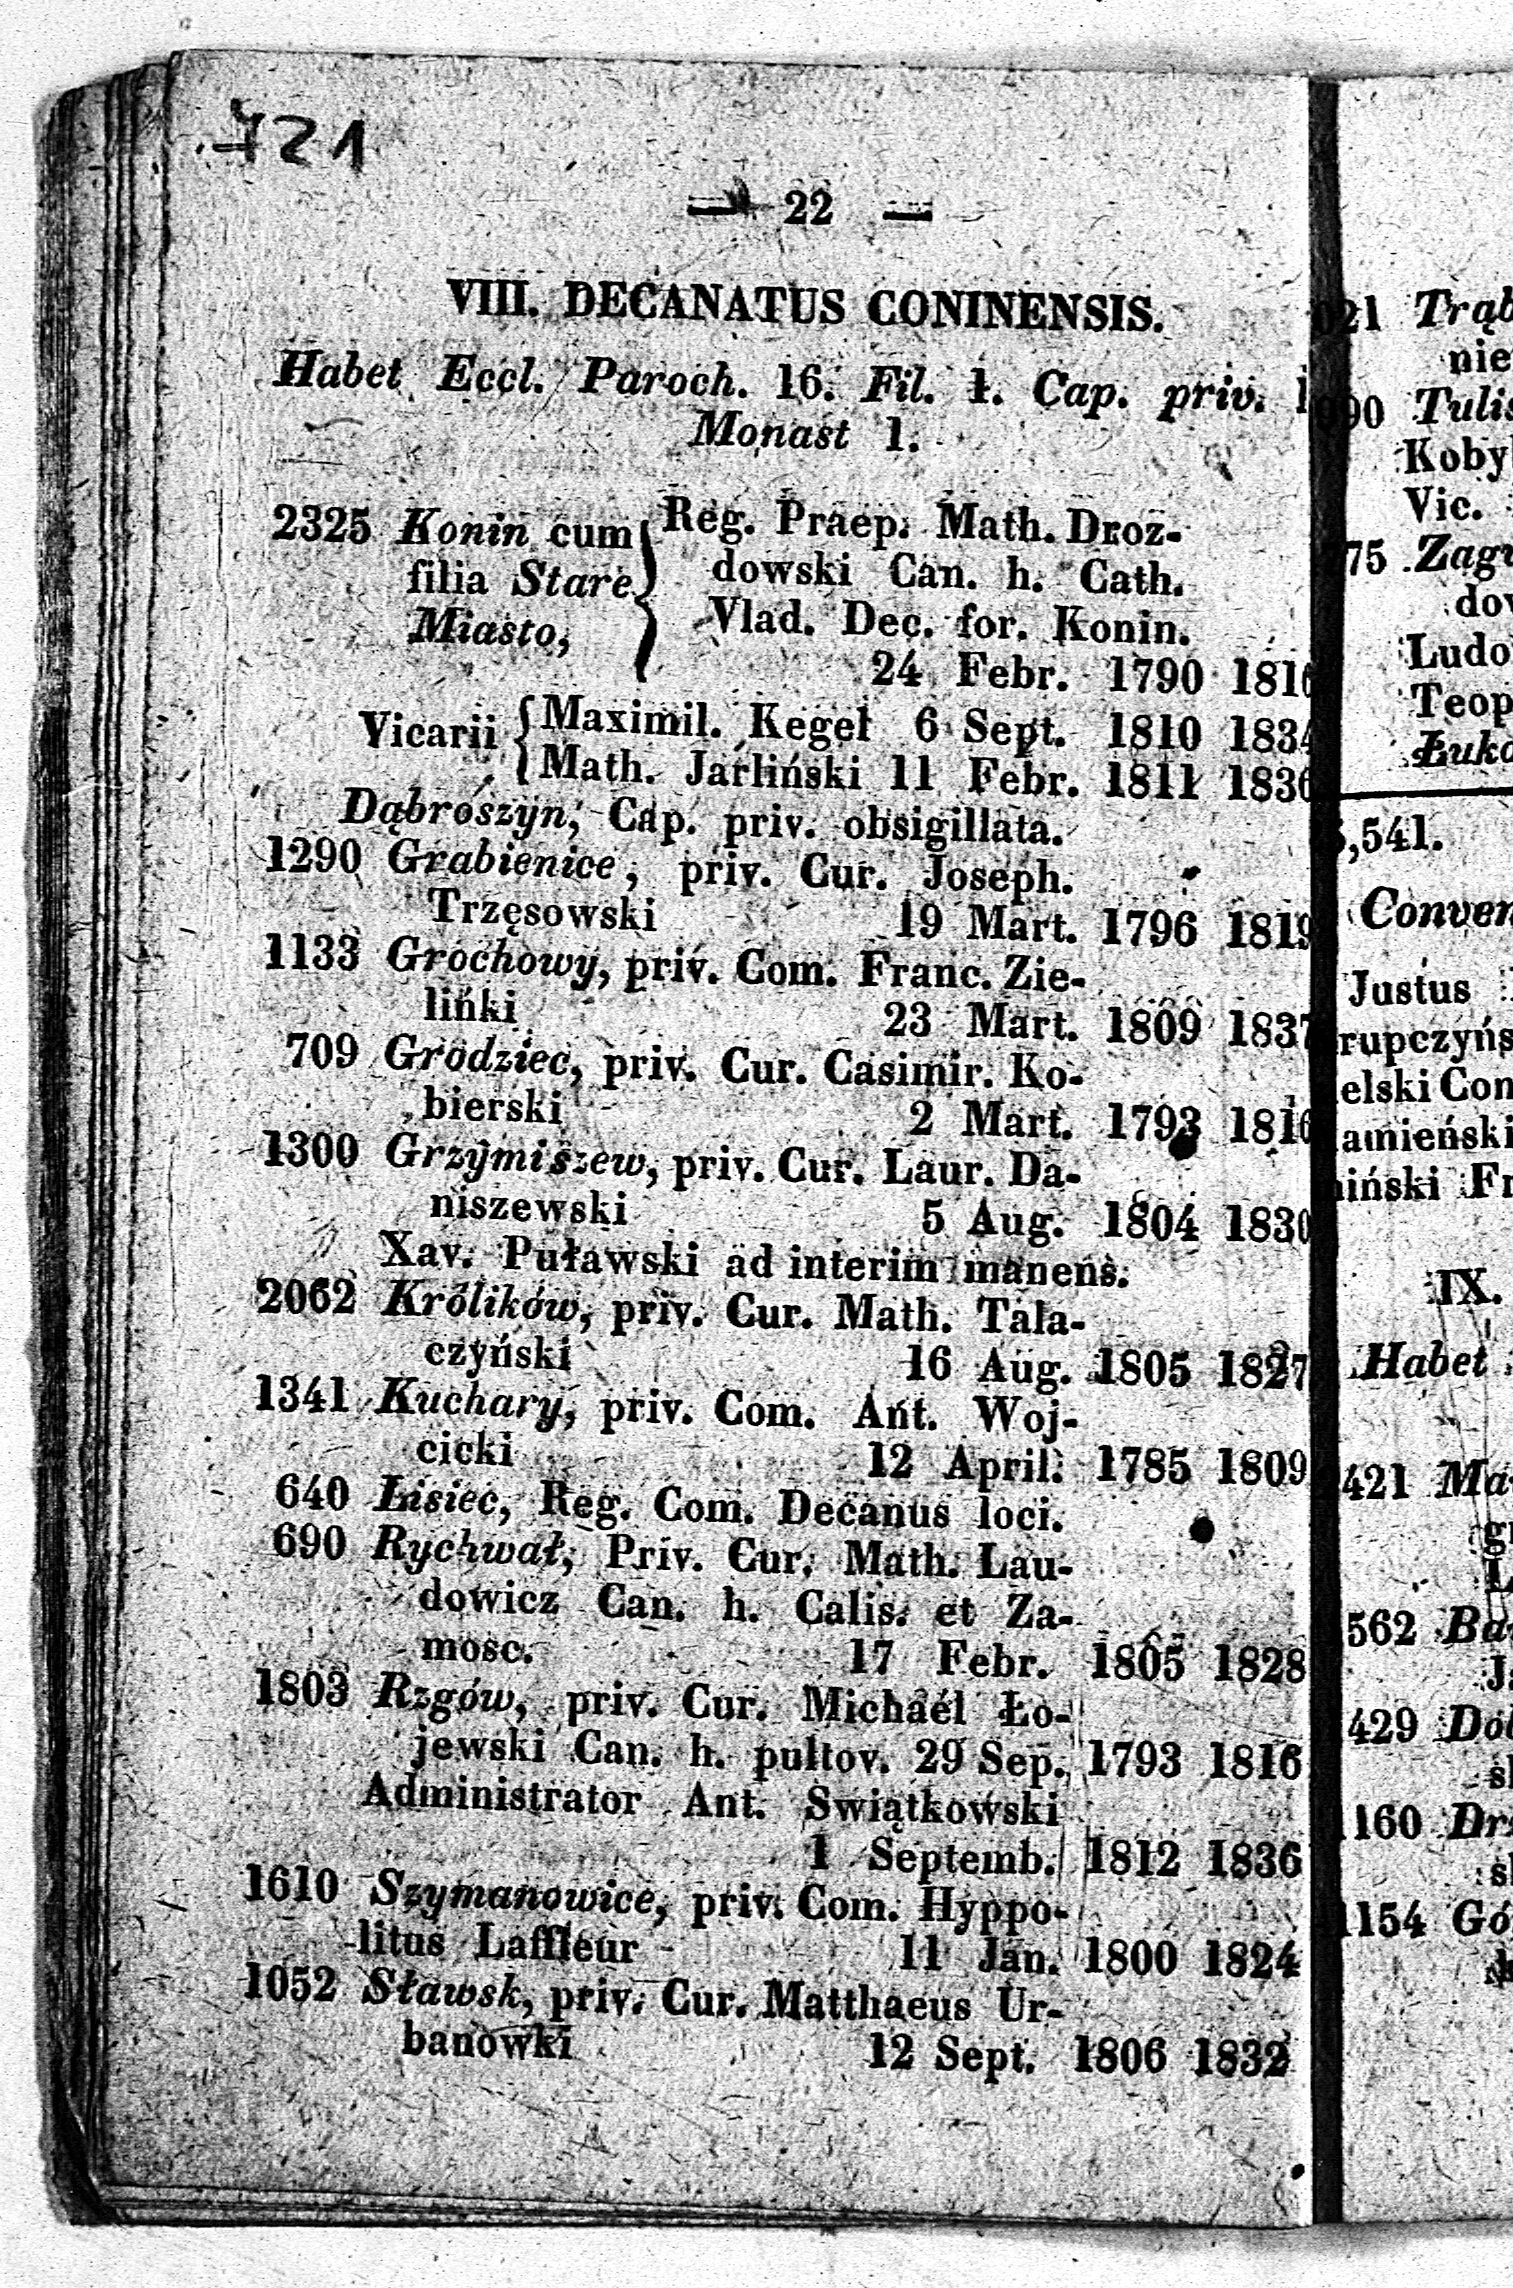 721
— 22 —
VIII. DECANATUS CONINENSIS.
Habet Eccl. Paroch. 16. Fil. 1. Cap. priv. 1
Monast 1.
2325 Konin cum Reg. Praep. Math. Droz-
filia Stare dowski Can. h. Cath.
Miasto, Vlad. Dec. for. Konin.
24 Febr. 1790 1816
Vicarii Maximil. Kegel 6 Sept. 1810 1834
Math. Jarliński 11 Febr. 1811 1836
Dąbroszyn, Cap. priv. obsigillata.
1290 Grabienice, priv. Cur. Joseph.
Trzęsowski 19 Mart. 1796 1819
1133 Grochowy, priv. Com. Franc. Zie-
lińki 23 Mart. 1809 1837
709 Grodziec, priv. Cur. Casimir. Ko-
bierski 2 Mart. 1793 1816
1300 Grzymiszew, priv. Cur. Laur. Da-
niszewski 5 Aug. 1804 1830
Xav. Puławski ad interim manens.
2062 Królików, priv. Cur. Math. Tala-
czyński 16 Aug. 1805 1827
1341 Kuchary, priv. Com. Ant. Woj-
cicki 12 April. 1785 1809
640 Lisiec, Reg. Com. Decanus loci.
690 Rychwał, Priv. Cur. Math. Lau-
dowicz Can. h. Calis. et Za-
mosc. 17 Febr. 1805 1828
1803 Rzgów, priv. Cur. Michaél Ło-
jewski Can. h. pultov. 29 Sep. 1793 1816
Administrator Ant. Swiątkowski
1 Septemb. 1812 1836
1610 Szymanowice, priv. Com. Hyppo-
litus Laffleur 11 Jan. 1800 1824
1052 Sławsk, priv. Cur. Matthaeus Ur-
banowki 12 Sept. 1806 1832
21 Trąb
nie
90 Tulis
Koby
Vic.
75 Zagu
dov
Ludo
Teop
Łuka
,541.
Conven
Justus
rupczyńs
elski Con
amieński
iński Fr
IX.
Habet
421 Ma
gr
L
562 Ba
Ja
429 Dob
sl
1160 Drz
sl
1154 Gó